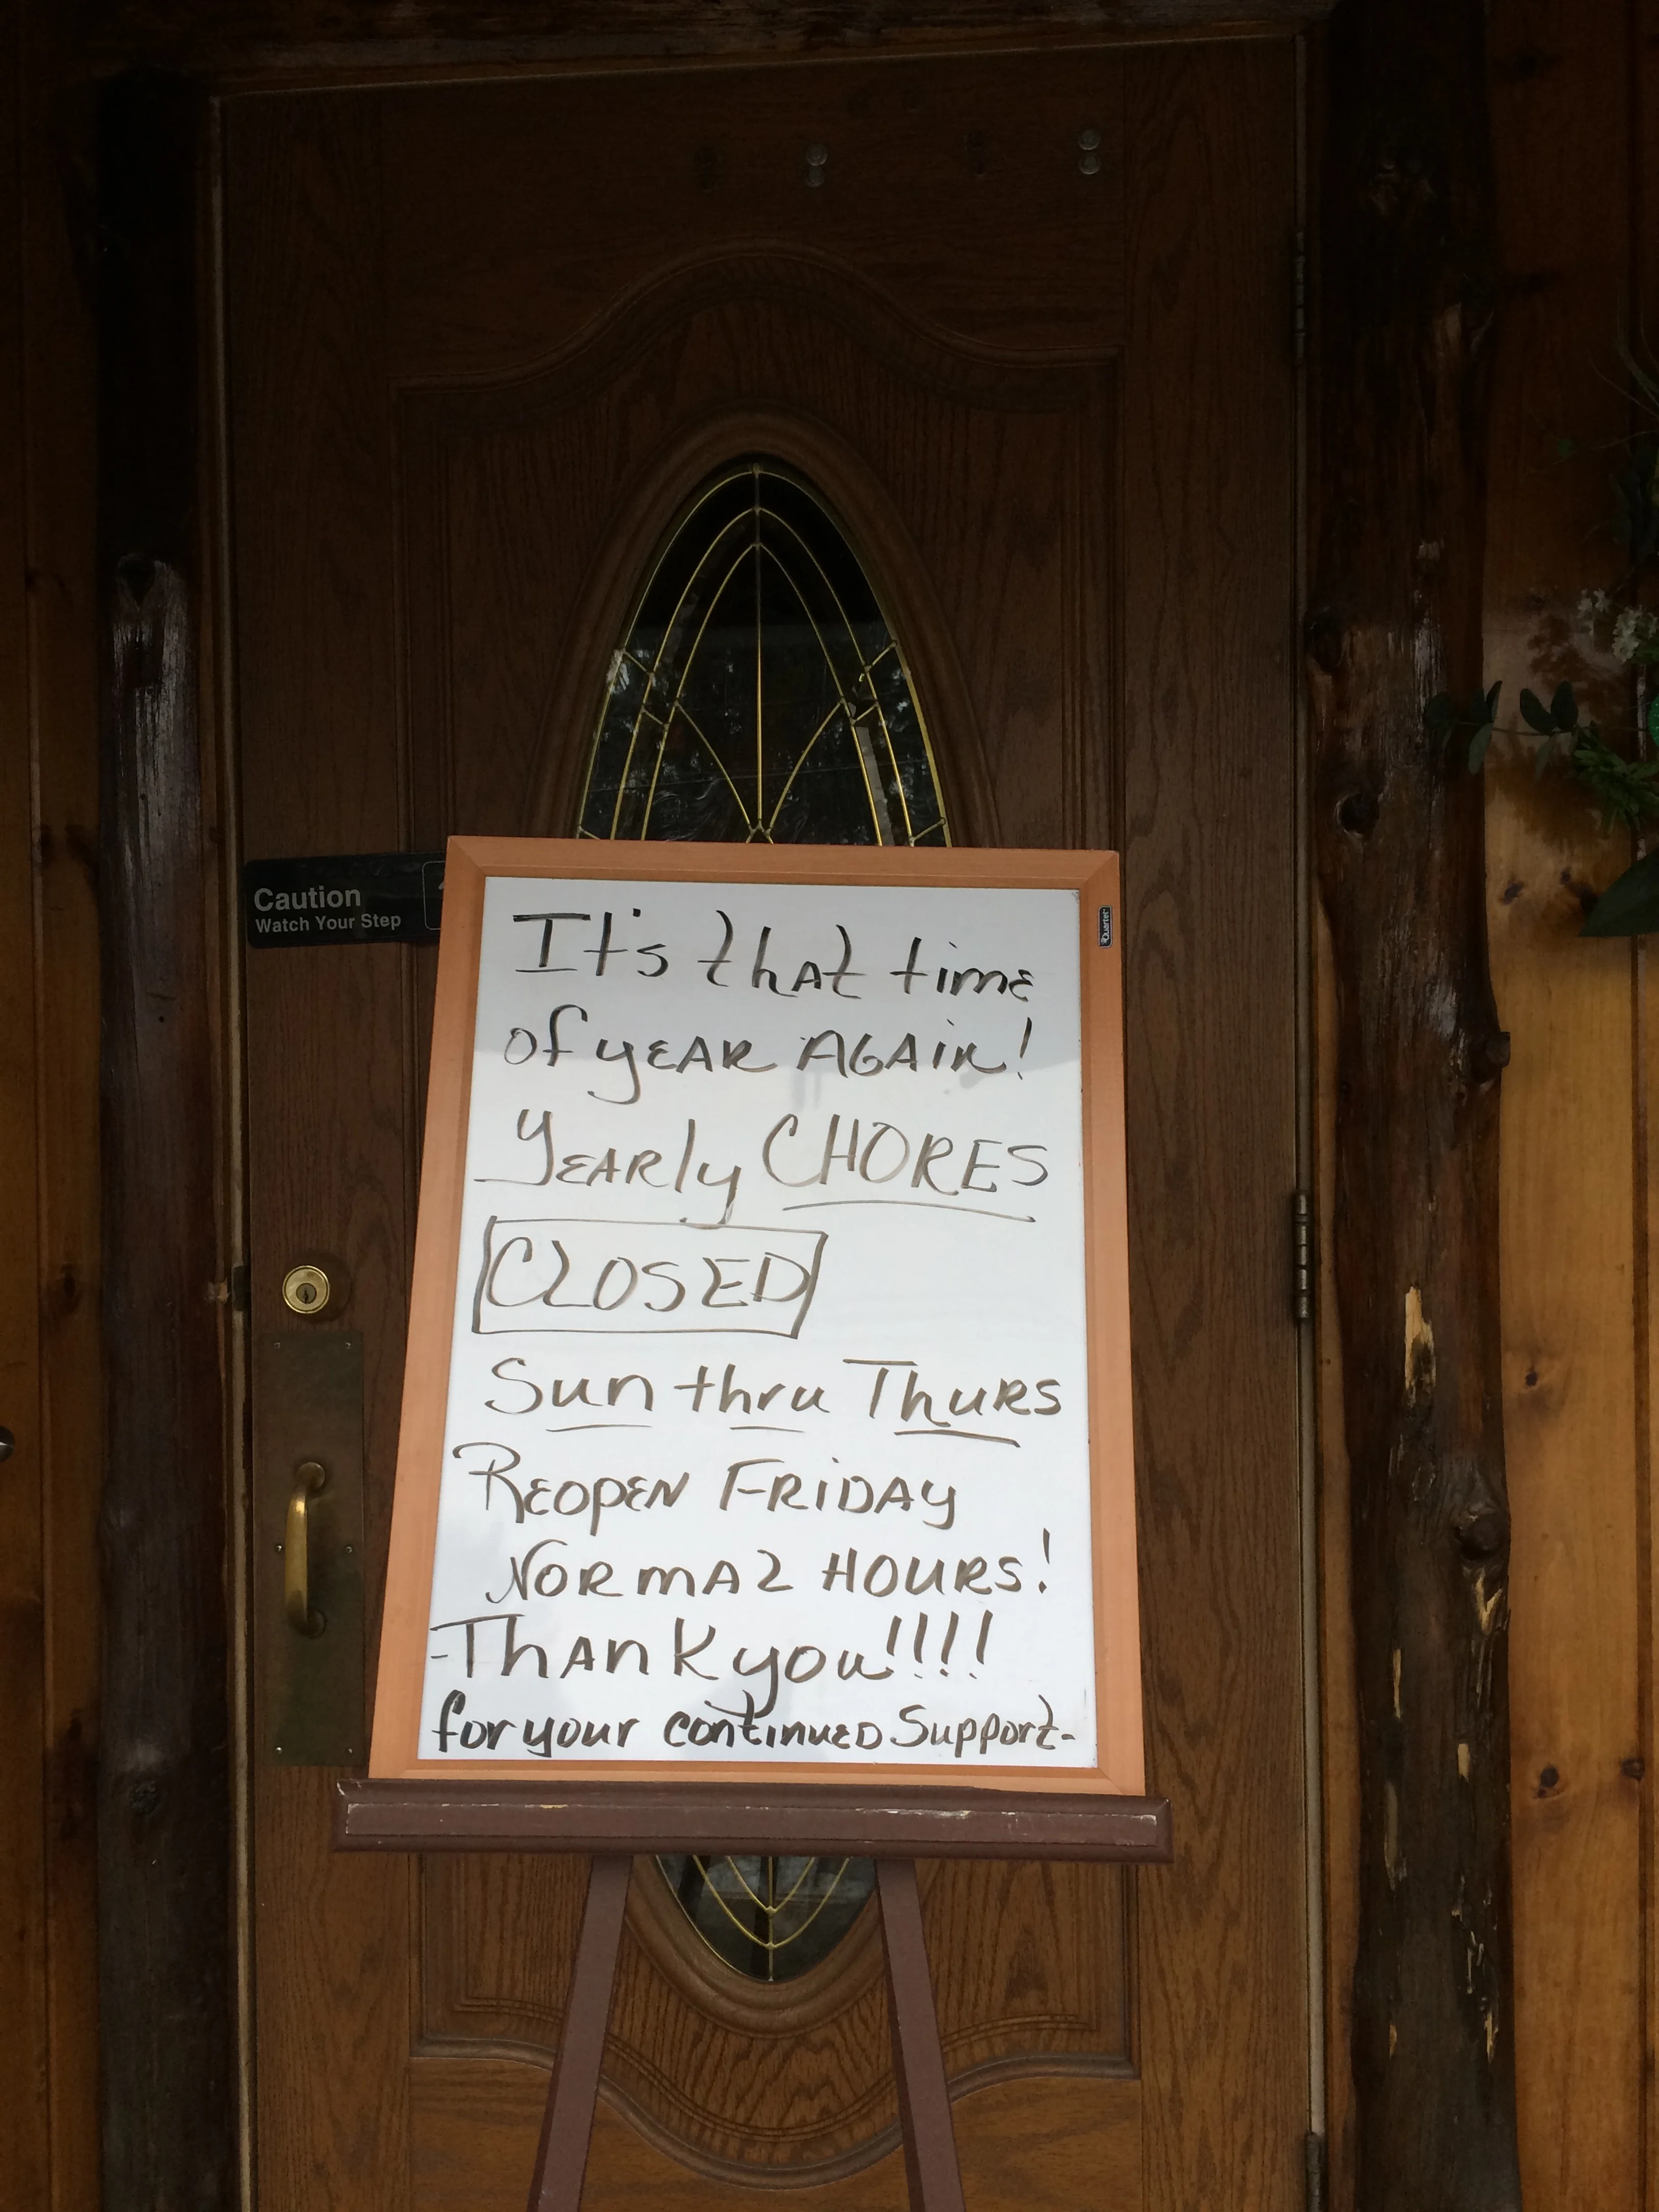 Caution
Watch Your Step
Quartet
It's that time
of year AGAIN!
Yearly CHORES
CLOSED
Sun thru Thurs
Reopen Friday
Normal Hours!
Thank you!!!!
for your continued Support-